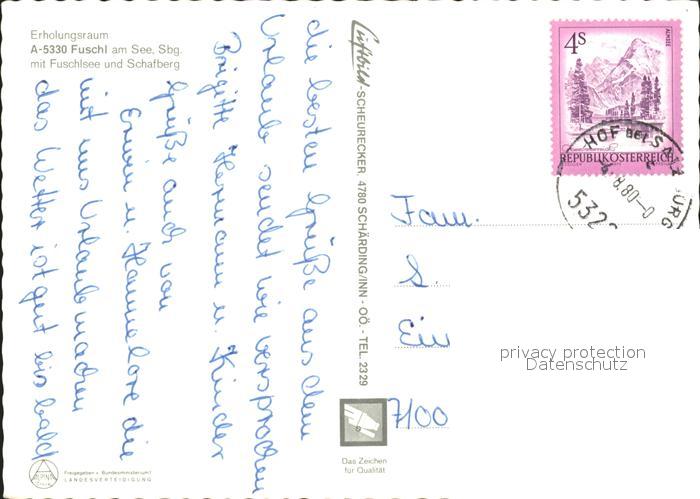 Erholungsraum
A-5330 Fuschl am See, Sbg.
mit Fuschlsee und Schafberg
die besten Grüße aus dem
Urlaub sendet wie versprochen
Brigitte Hermann u. Kinder
Grüße auch von
Erwin u. Hannelore die
mit uns Urlaub machen
das Wetter ist gut bis bald
Luftbild-SCHEURECKER, 4780 SCHÄRDING/INN - OÖ. - TEL. 2329
4S
ALMSEE
REPUBLIK ÖSTERREICH
HOF BEI SALZBURG
.8.80-0
532
Fam.
S.
Ein
7100
privacy protection
Datenschutz
Das Zeichen
für Qualität
ALPINA
Freigegeben v. Bundesministerium f.
LANDESVERTEIDIGUNG